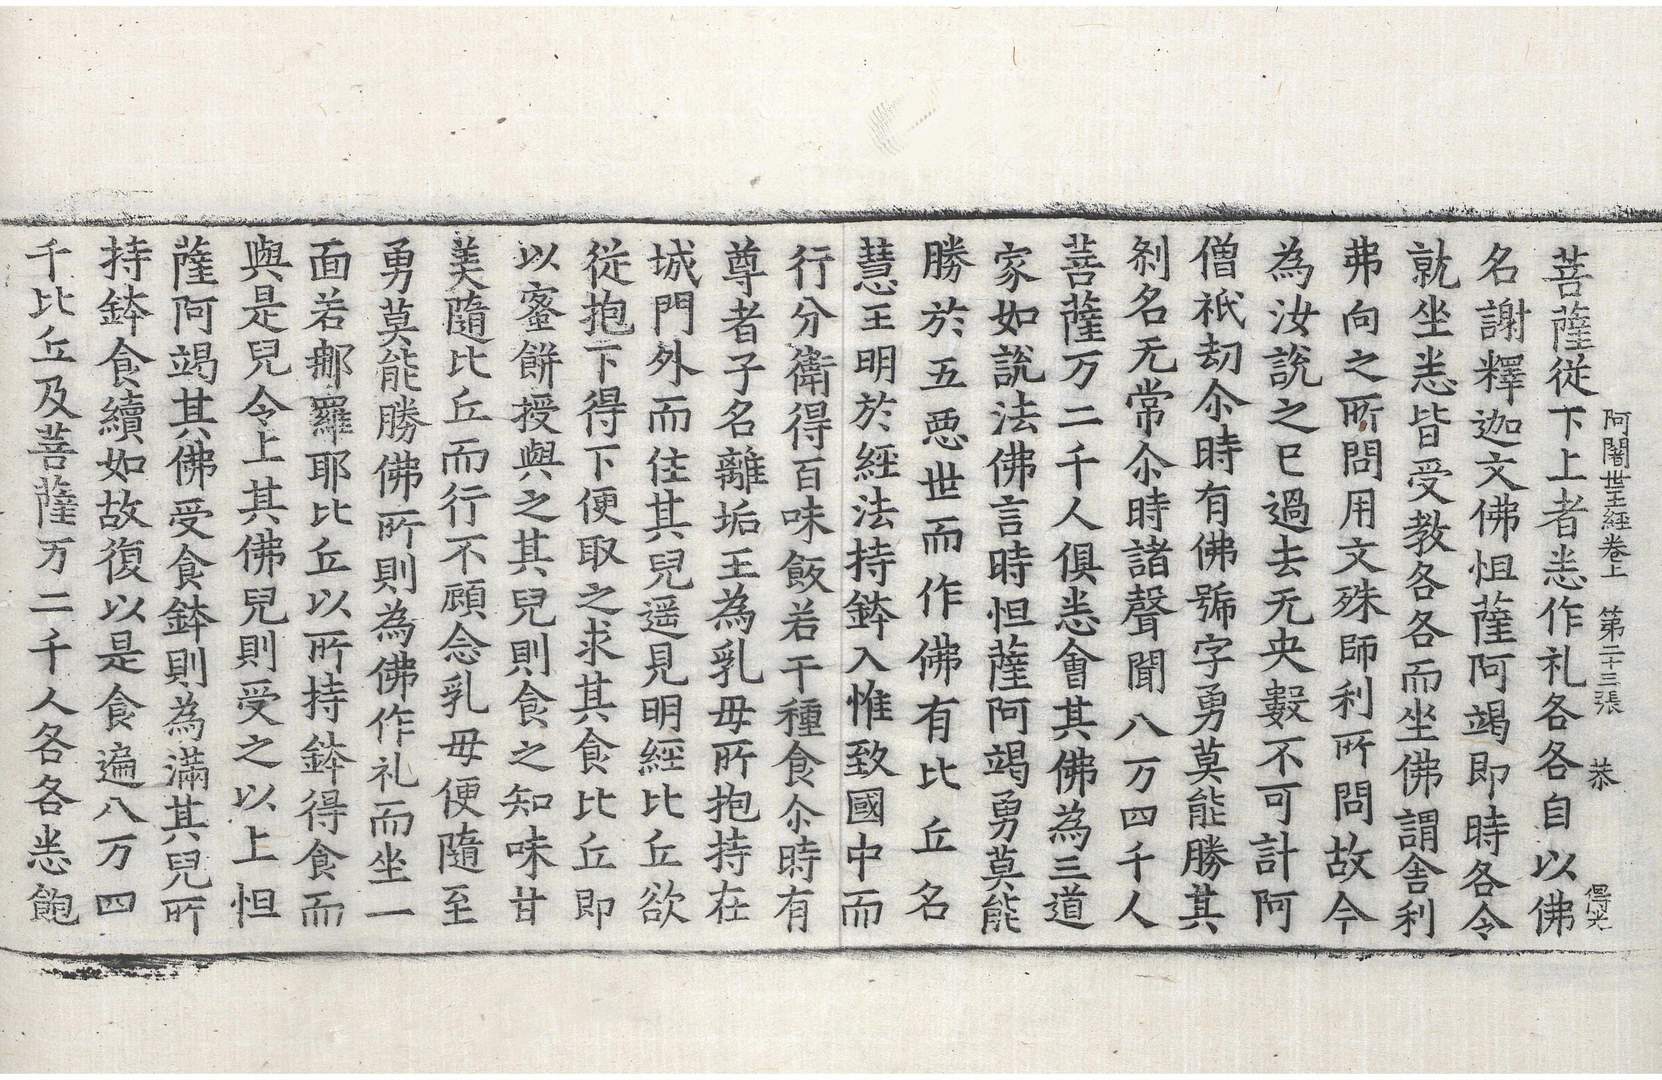 阿闍世王經卷上　第二十三張　恭　得光
菩薩從下上者悉作礼各各自以佛
名謝釋迦文佛怛薩阿竭即時各令
就坐悉皆受教各各而坐佛謂舍利
弗向之所問用文殊師利所問故今
為汝說之已過去无央數不可計阿
僧祇劫尒時有佛號字勇莫能勝其
剎名无常尒時諸聲聞八万四千人
菩薩万二千人俱悉會其佛為三道
家如說法佛言時怛薩阿竭勇莫能
勝於五惡世而作佛有比丘名
慧王明於經法持鉢入惟致國中而
行分衛得百味飯若干種食尒時有
尊者子名離垢王為乳母所抱持在
城門外而住其兒遥見明經比丘欲
從抱下得下便取之求其食比丘即
以蜜餅授與之其兒則食之知味甘
美隨比丘而行不顧念乳母便隨至
勇莫能勝佛所則為佛作礼而坐一
面若那羅耶比丘以所持鉢得食而
與是兒令上其佛兒則受之以上怛
薩阿竭其佛受食鉢則為滿其兒所
持鉢食續如故復以是食遍八万四
千比丘及菩薩万二千人各各悉飽